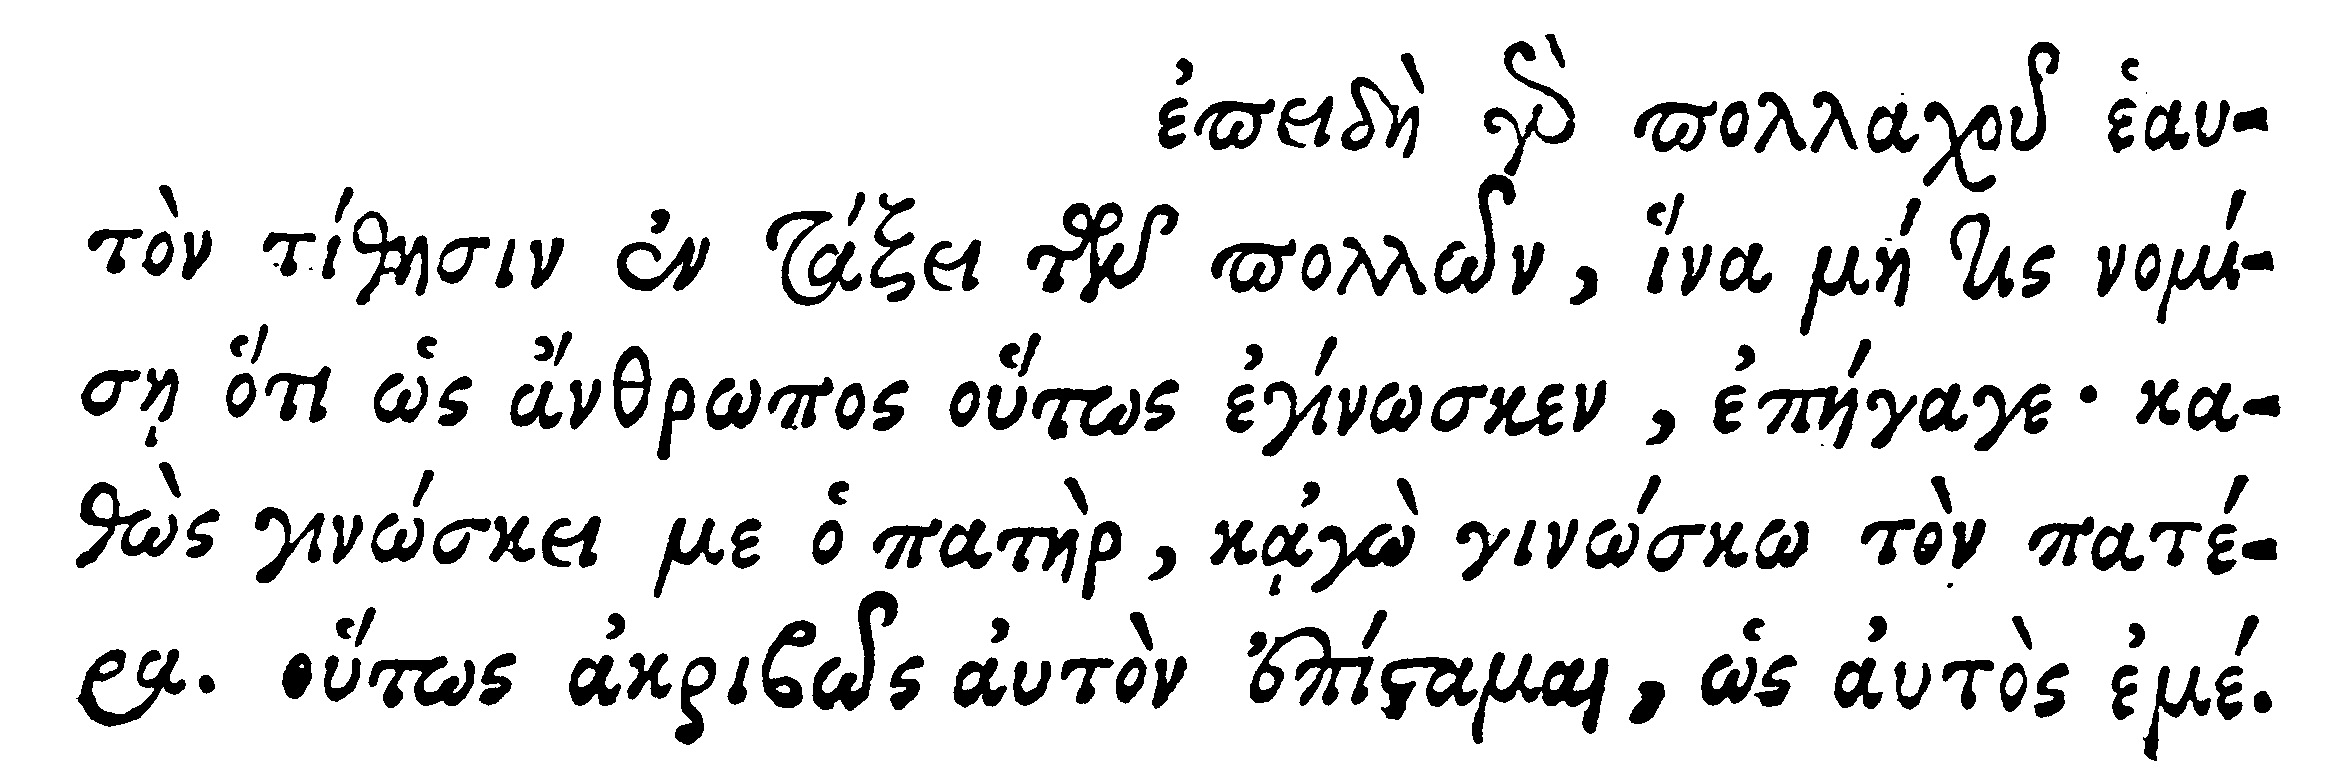 ἐπειδὴ γὰρ πολλαχοῦ ἑαυ-
τὸν τίθησιν ἐν τάξει τῶν πολλῶν, ἵνα μή τις νομί-
σῃ ὅτι ὡς ἄνθρωπος οὕτως ἐγίνωσκεν, ἐπήγαγε· κα-
θὼς γινώσκει με ὁ πατὴρ, κᾀγὼ γινώσκω τὸν πατέ-
ρα. οὕτως ἀκριβῶς ἀυτὸν ἐπίσταμαι, ὡς ἀυτὸς ἐμέ.